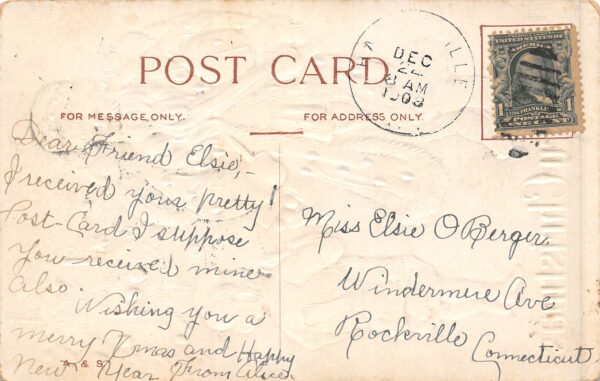 POST CARD.
FOR MESSAGE ONLY.
FOR ADDRESS ONLY.
VILLE
DEC
22
8 AM
1908
UNITED STATES OF
AMERICA
1
FRANKLIN
1
POSTAGE
Dear Friend Elsie,-
I received your pretty
Post-Card I suppose
you received mine
also.
Wishing you a
merry Xmas and Happy
New Year From Alice.
A & S
Miss Elsie O Berger
Windermere Ave
Rockville
Connecticut